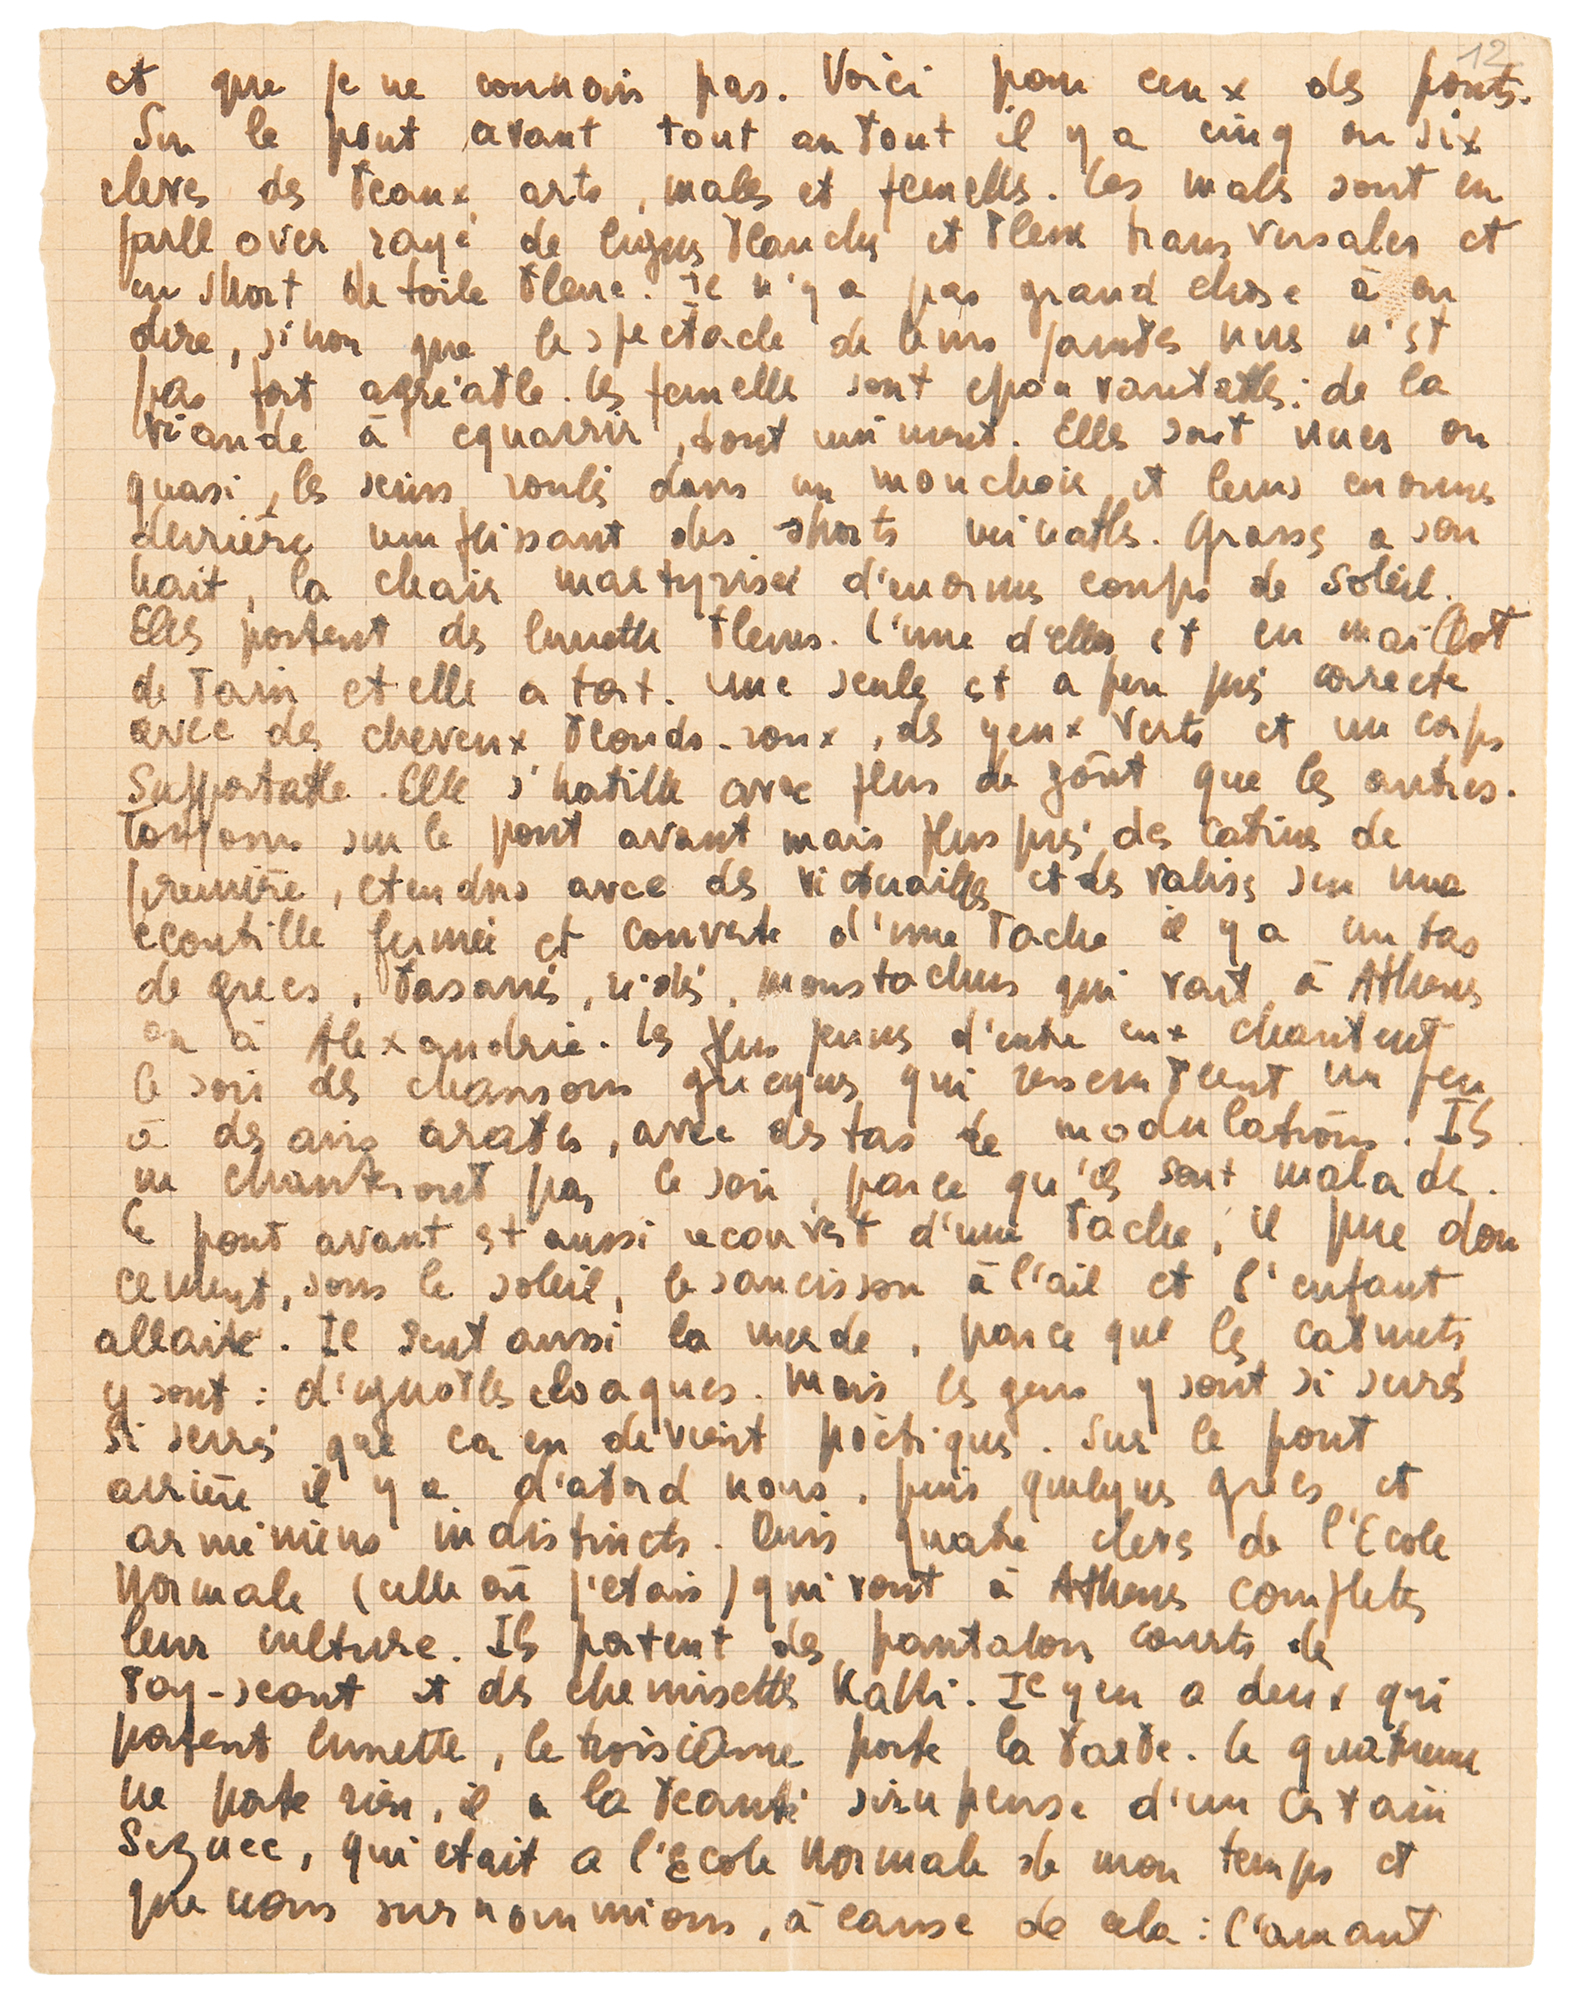 12
et que je ne connais pas. Voici pour ceux des ponts.
Sur le pont avant tout au bout il y a cinq ou six
eleves des beaux arts, males et femelles. Les mals sont en
pull over rayé de lignes blanches et bleue transversales et
en short de toile bleue. Il n'y a pas grand chose à en
dire, sinon que le spectacle de leurs jambes nues n'est
pas fort agréable. les femelle sont epouvantables : de la
viande à equarrir, tout uniment. Elles sont nues ou
quasi, les seins roulés dans un mouchoir et leurs enormes
derrière remplissant des shorts minables. Grasses a sou
hait, la chair martyrisée d'enormes coups de soleil.
Elles portent des lunette bleues. L'une d'elles et en maillot
de bain et elle a tort. Une seule est a peu près correcte
avec des cheveux blonds-roux, des yeux verts et un corps
supportable. Elle s'habille avec plus de goût que les autres.
Toujours sur le pont avant mais plus près des cabines de
première, etendus avec des victuailles et des valises sur une
ecoutille fermée et couverte d'une bache il y a un tas
de grecs, basanés, ridés, moustachus qui vont à Athenes
ou à Alexandrie. Les plus jeunes d'entre eux chantent
le soir des chansons grecques qui ressemblent un peu
à des airs arabes, avec des tas de modulations. Ils
ne chanteront pas ce soir, parce qu'ils sont malades.
Le pont avant est aussi recouvert d'une bache, il pue dou
cement, sous le soleil, le saucisson à l'ail et l'enfant
allaité. Il sent aussi la merde, parce que les cabinets
y sont : d'ignobles cloaques. Mais les gens y sont si serrés
si serrés que ca en devient poètique. Sur le pont
arrière il y a d'abord nous, puis quelques grecs et
arméniens indistincts. Puis quatre eleves de l'Ecole
Normale (celle où j'etais) qui vont à Athenes completer
leur culture. Ils portent des pantalons courts de
boy-scout et des chemisettes Kakhi. Il y en a deux qui
portent lunette, le troisième porte la barbe. Le quatrieme
ne porte rien, il a la beauté sirupeuse d'un certain
Seznec, qui etait a l'Ecole Normale de mon temps et
que nous surnommions, à cause de cela : l'amant